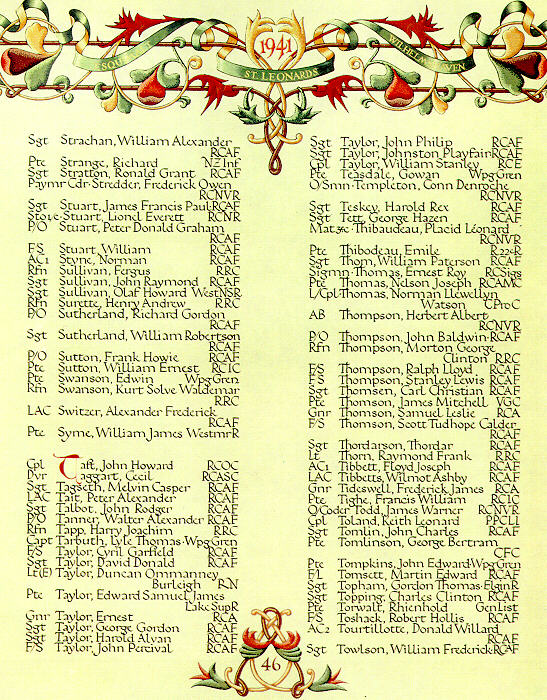 1941
ST. LEONARDS
Sgt Strachan, William Alexander
RCAF
Pte Strange, Richard NZ Inf
Sgt Stratton, Ronald Grant RCAF
Paymr Cdr Stredder, Frederick Owen
RCNVR
Sgt Stuart, James Paul RCAF
Sto1c Stuart, Lionel Everett RCNR
P/O Stuart, Peter Donald Graham
RCAF
F/S Stuart, William RCAF
AC1 Styne, Norman RCAF
Rfn Sullivan, Fergus RRC
Sgt Sullivan, John Raymond RCAF
Sgt Sullivan, Olaf Howard WestNSR
Rfn Surette, Henry Andrew RRC
P/O Sutherland, Richard Gordon
RCAF
Sgt Sutherland, William Robertson
RCAF
P/O Sutton, Frank Howie RCAF
Pte Sutton, William Ernest RCIC
Pte Swanson, Edwin WpgGren
Rfn Swanson, Kurt Solve Waldemar
RRC
LAC Switzer, Alexander Frederick
RCAF
Pte Syme, William James WestmrR
Cpl Taft, John Howard RCOC
Dvr Taggart, Cecil RCASC
Sgt Tagseth, Melvin Casper RCAF
LAC Tait, Peter Alexander RCAF
Sgt Talbot, John Rodger RCAF
P/O Tanner, Walter Alexander RCAF
Rfn Tapp, Harry Joachim RRC
Capt Tarbuth, Lyle Thomas WpgGren
F/S Taylor, Cyril Garfield RCAF
Sgt Taylor, David Donald RCAF
Lt(E) Taylor, Duncan Ommanney
Burleigh RN
Pte Taylor, Edward Samuel James
LakeSupR
Gnr Taylor, Ernest RCA
Sgt Taylor, George Gordon RCAF
Sgt Taylor, Harold Alvan RCAF
F/S Taylor, John Percival RCAF
Sgt Taylor, John Philip RCAF
Sgt Taylor, Johnston Playfair RCAF
Cpl Taylor, William Stanley RCE
Pte Teasdale, Gowan WpgGren
O/Smn Templeton, Conn Denroche
RCNVR
Sgt Teskey, Harold Rex RCAF
Sgt Tett, George Hazen RCAF
Thibaudeau, Placid Léonard
RCNVR
Pte Thibodeau, Emile R22eR
Sgt Thom, William Paterson RCAF
Sigmn Thomas, Ernest Roy RCSigs
Pte Thomas, Nelson Joseph RCAMC
L/Cpl Thomas, Norman Llewellyn
Watson CProC
AB Thompson, Herbert Albert
RCNVR
P/O Thompson, John Baldwin RCAF
Rfn Thompson, Morton George
Clinton RRC
F/S Thompson, Ralph Lloyd RCAF
F/S Thompson, Stanley Lewis RCAF
Sgt Thomsen, Carl Christian RCAF
Pte Thomson, James Mitchell VGC
Gnr Thomson, Samuel Leslie RCA
F/S Thomson, Scott Tudhope Calder
RCAF
Sgt Thordarson, Thordar RCAF
Lt Thorn, Raymond Frank RRC
AC1 Tibbett, Floyd Joseph RCAF
LAC Tibbetts, Wilmot Ashby RCAF
Gnr Tideswell, Frederick James RCA
Pte Tighe, Francis William RCIC
O/Coder Todd, James Warner RCNVR
Cpl Toland, Keith Leonard PPCLI
Sgt Tomlin, John Charles RCAF
Pte Tomlinson, George Bertram
CFC
Pte Tompkins, John Edward WpgGren
F/L Tomsett, Martin Edward RCAF
Sgt Topham, Gordon Thomas ElginR
Sgt Topping, Charles Clinton RCAF
Pte Torwalt, Rhienhold GenList
F/S Toshack, Robert Hollis RCAF
AC2 Tourtillotte, Donald Willard
RCAF
Sgt Towlson, William Frederick RCAF
46